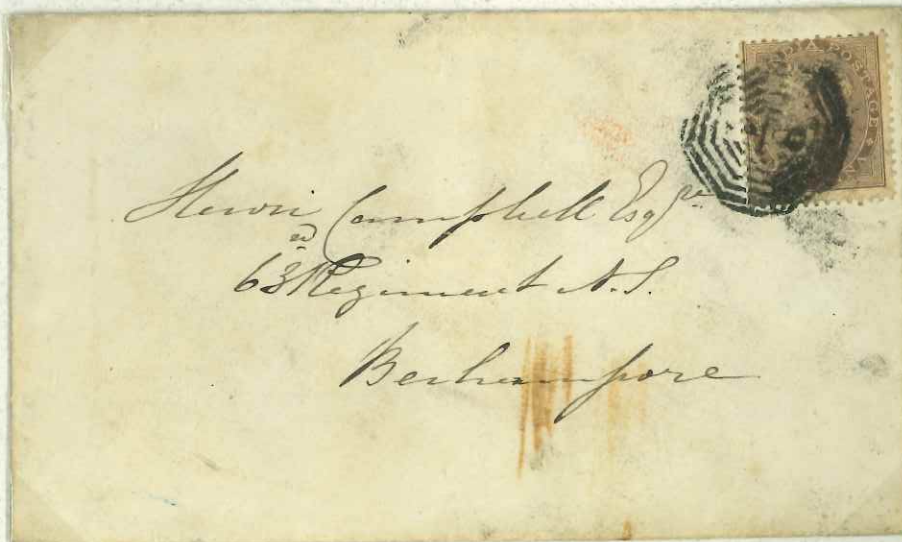 INDIA POSTAGE
Henri Campbell Esqre
63d Regiment N.I.
Berhampore